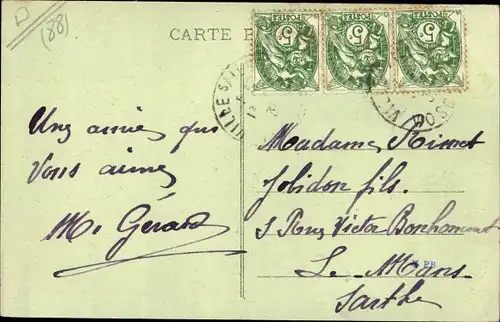 (88)
CARTE
POSTES
5
POSTES
5
POSTES
5
Une amie qui
vous aime
M. Gérard
Madame Nimet
Jolidon fils.
3 Rue Victor Bonhommet
Le Mans
Sarthe
PR